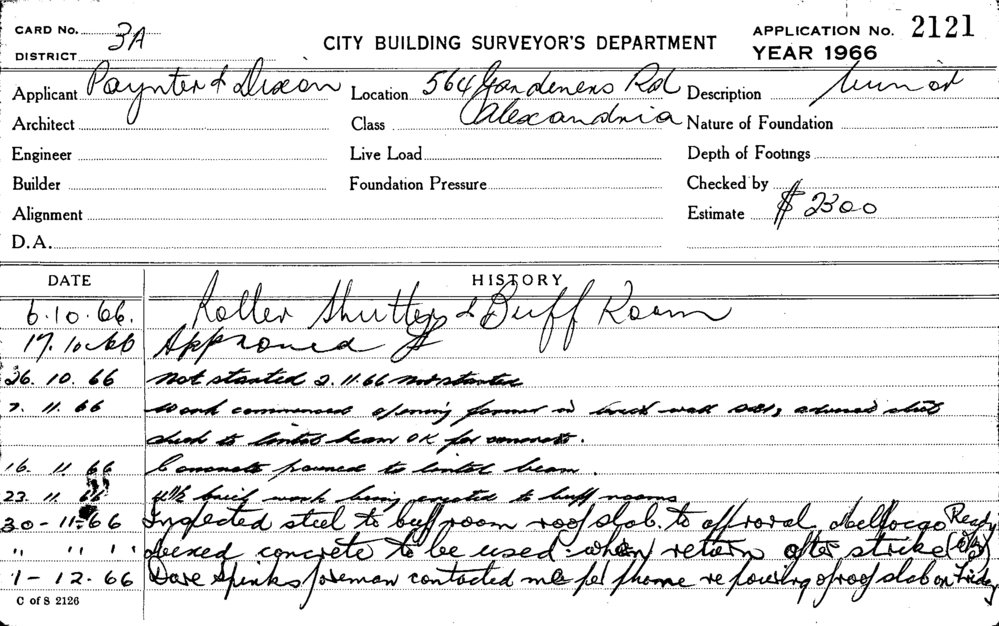 CARD No. 3A
DISTRICT
CITY BUILDING SURVEYOR'S DEPARTMENT
APPLICATION No. 2121
YEAR 1966
Applicant Paynter & Dixon Location 564 Gardeners Rd Description
Alexandria
Architect Class Nature of Foundation
Engineer Live Load Depth of Footings
Builder Foundation Pressure Checked by
Alignment Estimate $ 2300
D.A.
DATE HISTORY
6.10.66. Roller Shutters & Buff Room
17.10.66 Approved
26.10.66 Not started 2.11.66 Not started
7.11.66 Work commenced opening formed in brick wall steel
steel to lintel beam OK for concrete.
16.11.66 Concrete poured to lintel beam.
23.11.66 4½ brick work being erected to buff rooms
30-11-66 Inspected steel to buff room roof slab. to approval. Ready
" " " " mixed concrete to be used when return after strike
1-12.66 Dave Spinks foreman contacted me per phone re pouring of roof slab on Friday
C of S 2126